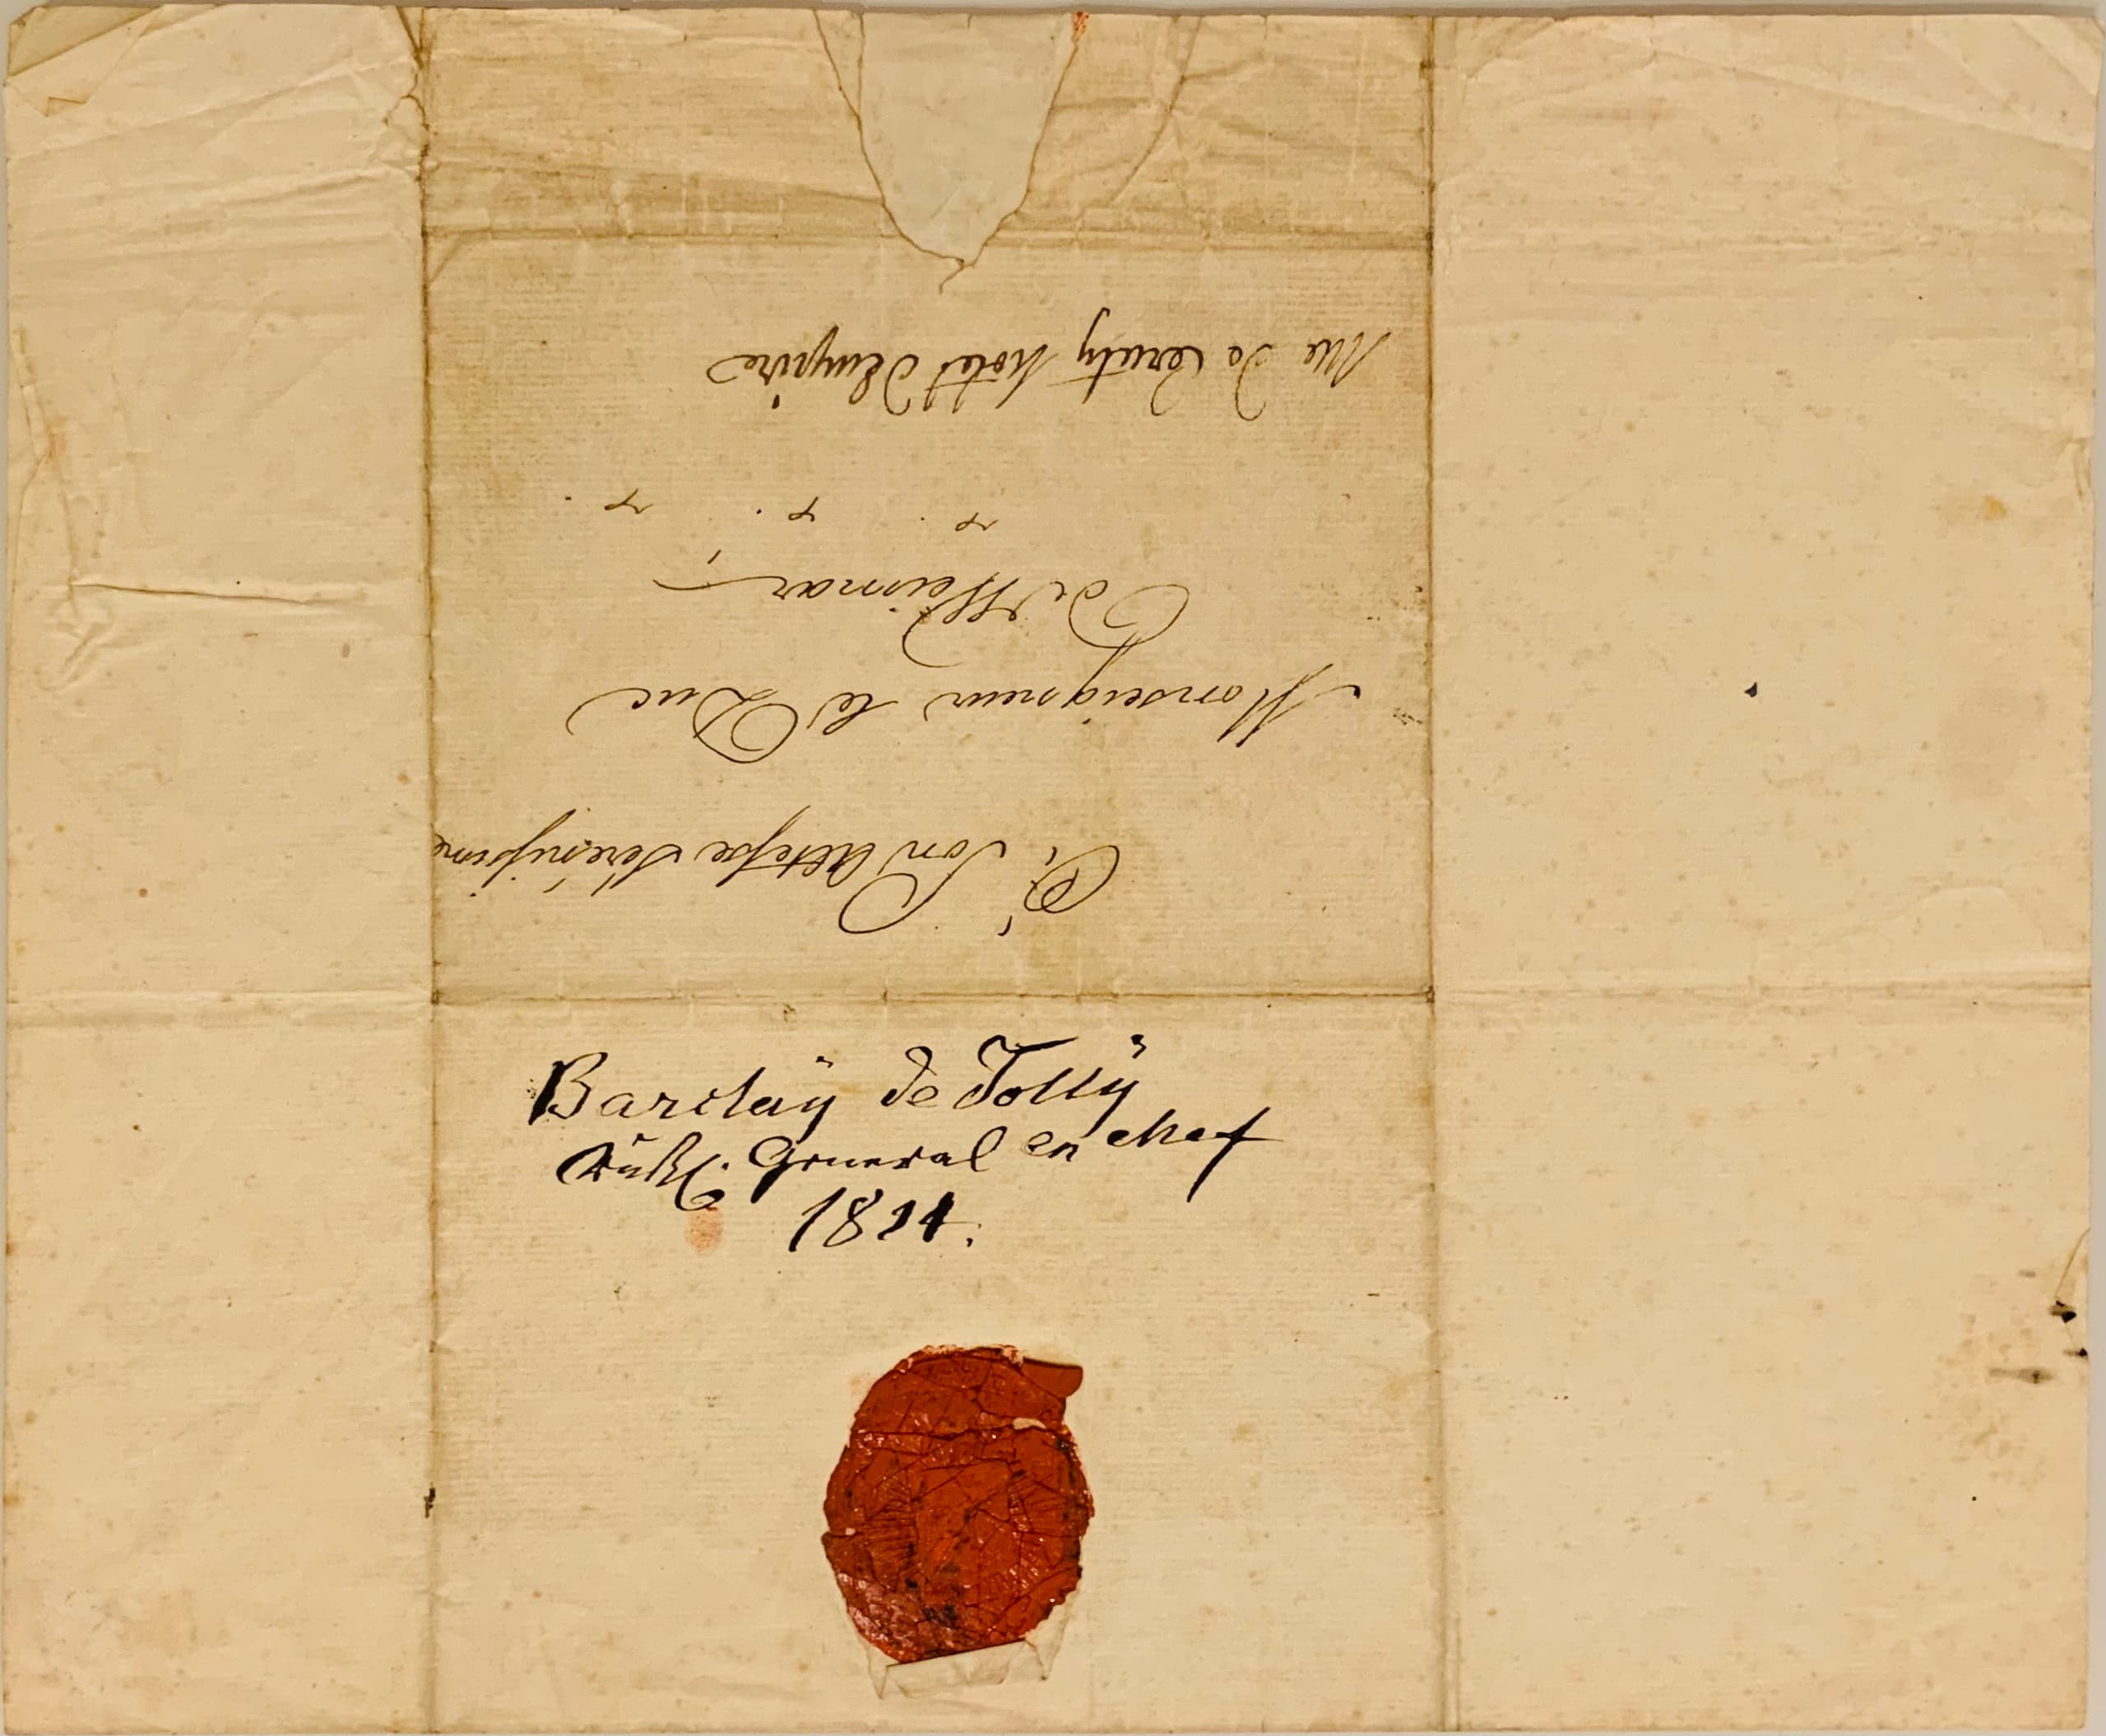 À Son Altesse Sérénissime
Monseigneur le Duc
de Weimar
Rue de Cerutty hotel d'Empire
Barclaÿ de Tollÿ
rußl. General en chef
1814.